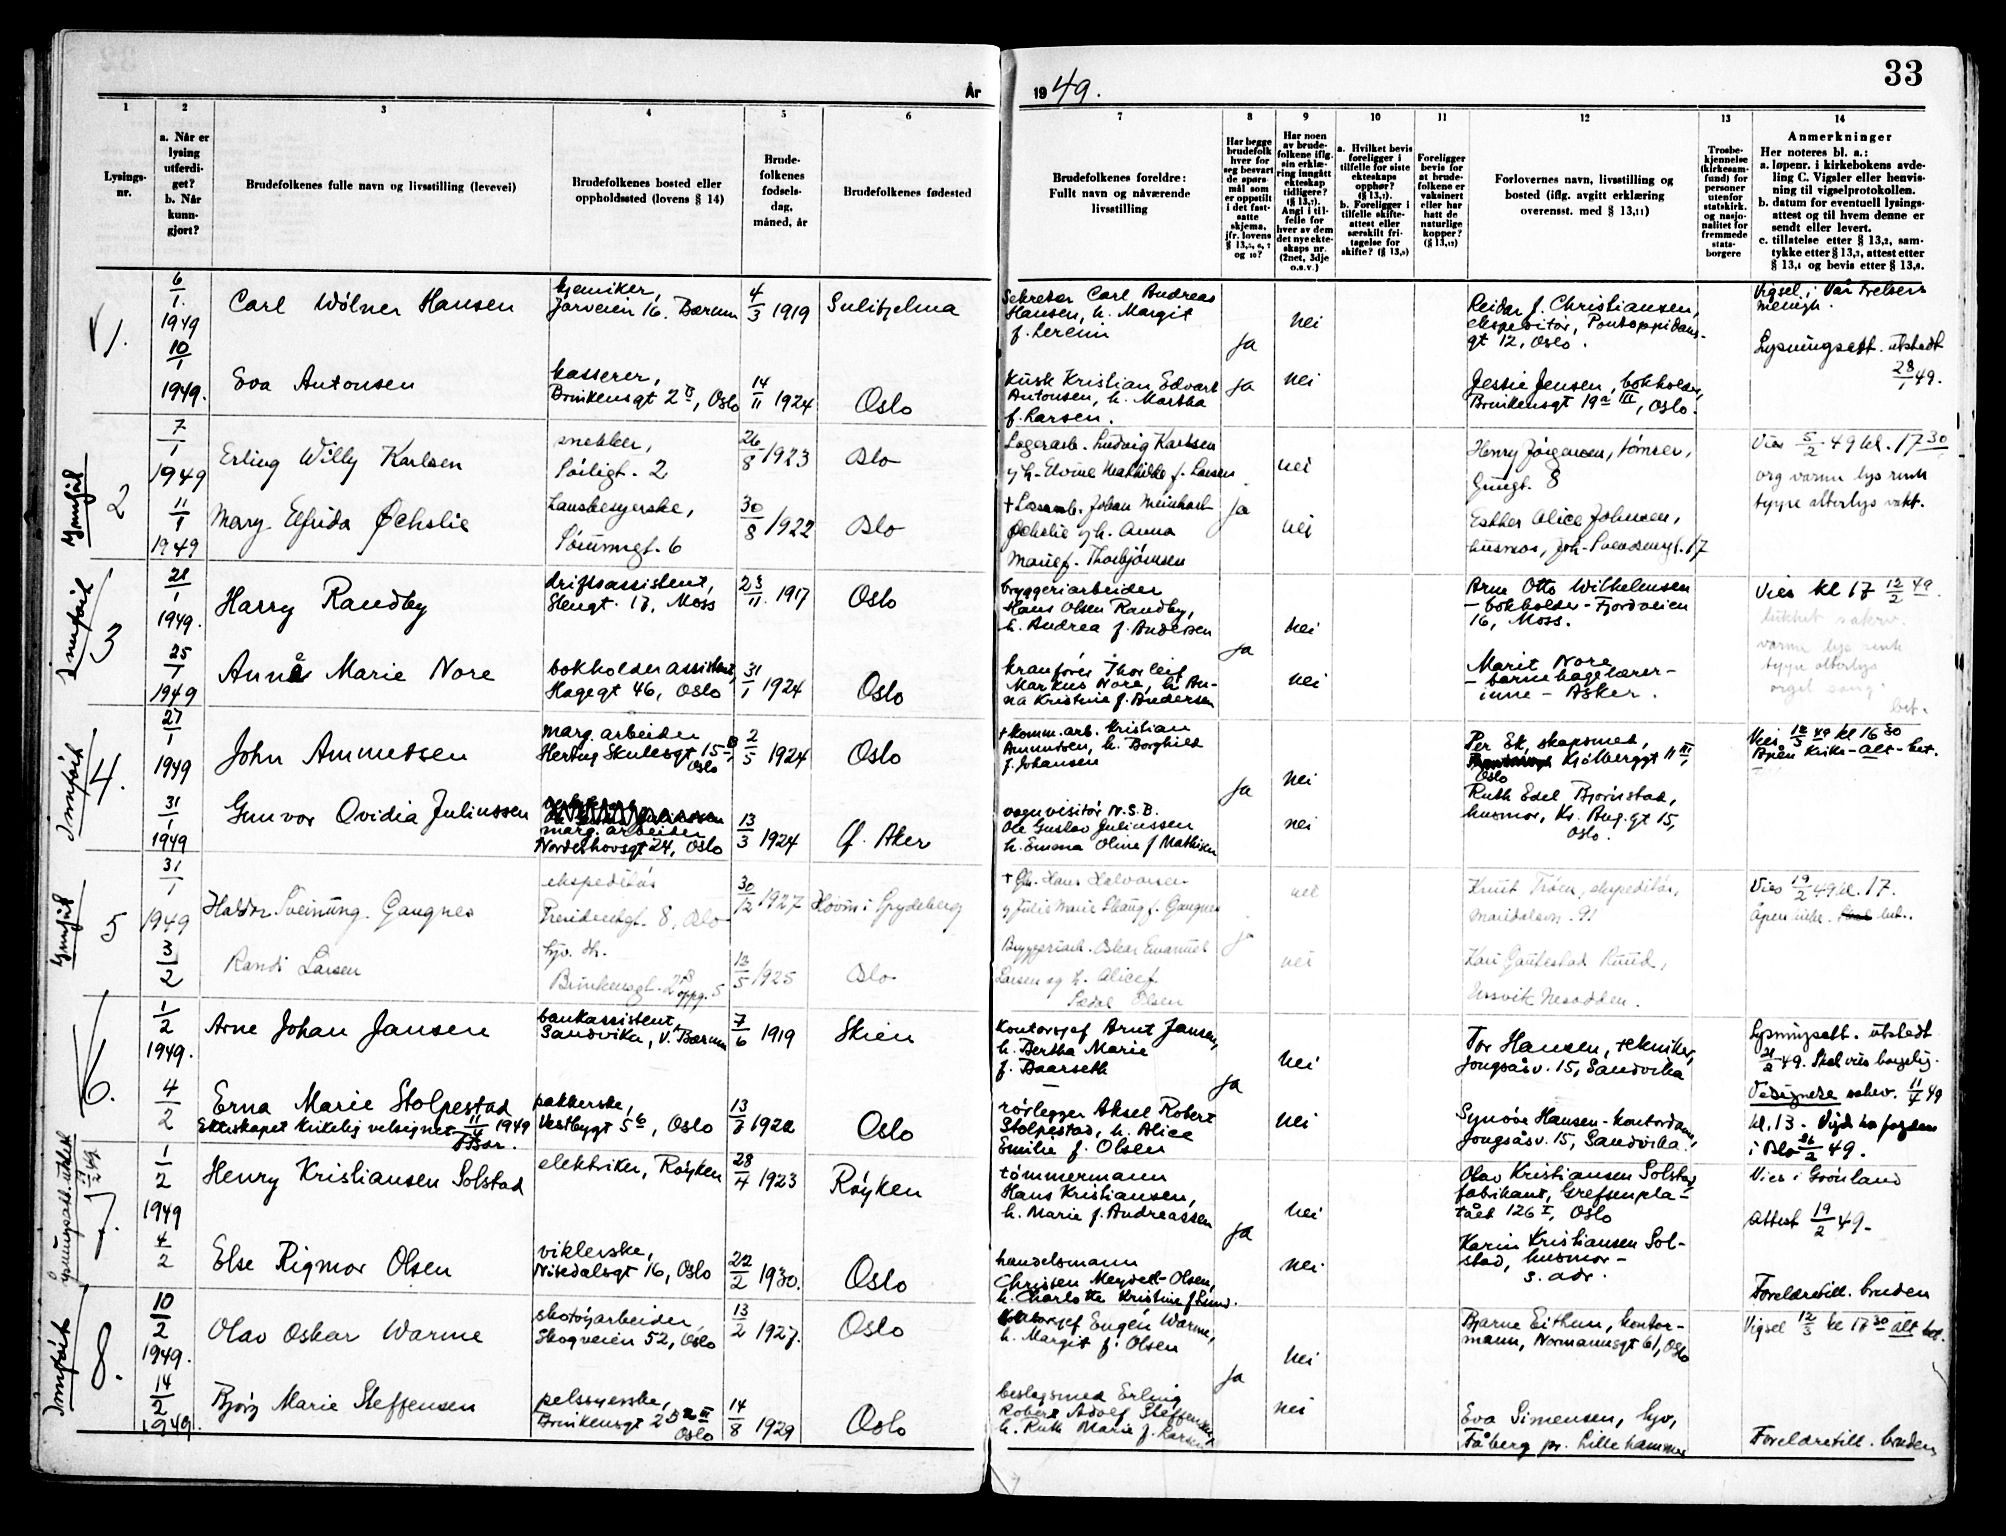 33
År
1949.
1
2
3
4
5
6
7
8
9
10
11
12
13
14
Lysings-
nr.
a. Når er
lysing
utferdi-
get?
b. Når
kunn-
gjort?
Brudefolkenes fulle navn og livsstilling (levevei)
Brudefolkenes bosted eller
oppholdssted (lovens § 14)
Brude-
folkenes
fødsels-
dag,
måned, år
Brudefolkenes fødested
Brudefolkenes foreldre:
Fullt navn og nåværende
livsstilling
Har begge
brudefolk
hver for
seg besvart
de spørs-
mål som
er oppstilt
i det fast-
satte
skjema,
jfr. lovens
og 10?
Har noen
av brude-
folkene iflg.
sin erklæ-
ring inngått
ekteskap
tidligere?
(§ 13,7).
Angi i til-
felle for
hver av dem
det nye ekte-
skaps nr.
(2net, 3dje
o.s.v.)
a. Hvilket bevis
foreligger i
tilfelle for siste
ekteskaps
opphør?
(§ 13,7).
b. Foreligger i
tilfelle skifte-
attest eller
særskilt fri-
tagelse for
skifte? (§ 13,9)
Foreligger
bevis for
at brude-
folkene er
vaksinert
eller har
hatt de
naturlige
kopper?
(§ 13,12)
Forlovernes navn, livsstilling og
bosted (iflg. avgitt erklæring
overensst. med § 13,11)
Trosbe-
kjennelse
(kirkesam-
fund) for
personer
utenfor
statskirk.
og nasjo-
nalitet for
fremmede
stats-
borgere
Anmerkninger
Her noteres bl. a.:
a. løpenr. i kirkebokens avde-
ling C. Vigsler eller henvis-
ning til vigselprotokollen.
b. datum for eventuell lysings-
attest og til hvem denne er
sendt eller levert.
c. tillatelse etter § 13,2, sam-
tykke etter § 13,3, attest etter
§ 13,4 og bevis etter § 13,8.
1.
6/1. 1949
Carl Wølner Hansen
kjemiker,
Jarveien 16. Bærum
4/3 1919
Sulitjelma
Sekretær Carl Andreas
Hansen, h. Margit
ja
nei
Reidar J. Christiansen,
ekspeditør, Pontoppidans-
gt 12, Oslo.
Vigsel i Vår Frelsers
menigh.
Lysningsatt. utstedt
28/1 49.
10/1 1949.
Eva Antonsen
kasserer,
Brinkensgt 2, Oslo
14/11 1924
Oslo
Kusk Kristian Edvart
Antonsen, h. Martha
f. Larsen.
ja
nei
Jessie Jensen, bokholder,
Brinkensgt 19a III, Oslo.
2
7/1 1949
Erling Willy Karlsen
snekker,
Sørligt. 2
26/8 1923
Oslo
Lagerarb. Ludvig Karlsen
og h. Elvine Mathilde f. Larsen
nei
Henry Jørgensen, tømrer,
Vies 5/2 49 kl. 17 30
11/1 1949
Mary Elfrida Øchslie
30/8 1922
Oslo
Øchslie og h. Anna
Marie f. Thorbjørnsen
ja
nei
Esther Alice Johnsen,
husmor, Joh. Svendsensgt. 17
3
21/1 1949.
Harry Randby
driftsassistent,
Stengt. 17, Moss
23/11. 1917
Oslo
bryggeriarbeider
Hans Olsen Randby,
h. Andrea f. Andersen
ja
nei
Arne Otto Wilhelmsen
– bokholder – Fjordveien
16, Moss.
Vies kl 17 12/2 49.
25/1 1949
Anna Marie Nore
bokholderassistent,
Hagegt 46, Oslo
31/1 1924
Oslo
kranfører Thorleif
Markus Nore, h. An-
na Kristine f. Andersen
nei
Marit Nore
– barnehagelærer-
inne – Asker.
4.
27/1 1949
John Amundsen
marg. arbeider
Hertug Skulesgt 15 B,
Oslo
2/5 1924
Oslo
† komm. arb. Kristian
Amundsen, h. Borghild
f. Johansen
ja
nei
Per Ek, skapsmed,
Kjølberggt 11 III,
Oslo
Vies 12/3 49 kl 16 30
Åpen kirke – alt – bet.
31/1 1949
Gunvor Ovidia Juliussen
marg. arbeider
Norderhovsgt 24, Oslo
13/3 1924
Ø. Aker
vognvisitør N.S.B.
Ole Gustav Juliussen
h. Emma Oline f Mathisen
nei
Ruth Edel Bjørnstad,
husmor, Kr. Aug. gt 15,
Oslo.
5
31/1 1949
Halvor Sveinung Gangnes
ekspeditør
Presidentgt. 8, Oslo
30/12 1927
Hovin i Spydeberg
nei
Knut Trøen, ekspeditør,
Maridalsvn. 91
Vies 19/2 49 kl. 17.
3/2
Randi Larsen
13/5 1925
Oslo
Bryggeriarb. Oskar Emanuel
Larsen og h. Alice f.
Olsen
ja
nei
Kari Gautestad Ruud,
Ursvik Nesodden.
6.
1/2 1949.
Arne Johan Jansen
bankassistent,
Sandvika, V. Bærum
7/6 1919
Skien
Kontorsjef Arnt Jansen,
h. Bertha Marie
f. Baarseth
ja
nei
Tor Hansen, tekniker,
Jongsåsv. 15, Sandvika
Lysningsatt. utstedt
21/2 49. Skal vies borgerlig.
4/2
Erna Marie Stolpestad
Ekteskapet kirkelig velsignet 11/4 1949
pakkerske,
Vestbygt 5 b, Oslo
13/8 1922
Oslo
rørlegger Aksel Robert
Stolpestad, h. Alice
Emilie f. Olsen
nei
Synøve Hansen – kontordame,
Jongsåsv. 15, Sandvika.
kl. 13.
i Oslo 26/2 49.
7.
1/2 1949
Henry Kristiansen Solstad
elektriker, Røyken
28/4 1923
Røyken
tømmermann
Hans Kristiansen,
h. Marie f. Andreassen
ja
nei
Olav Kristiansen Solstad
fabrikant, Grefsenpla-
tået 126 I, Oslo
Vies i Grønland
Attest 19/2 49.
4/2
Else Rigmor Olsen
viklerske,
Nitedalsgt 16, Oslo
22/2 1930.
Oslo
handelsmann
Christen Meydell-Olsen,
h. Charlotte Kristine f Lund.
nei
Karin Kristiansen Sol-
stad, husmor –
s. adr.
Foreldretill. bruden
8.
10/2 1949.
Olav Oskar Warme
skotøyarbeider,
Skogveien 52, Oslo
13/2 1927.
Oslo
Kontorsjef Eugén Warme,
h. Margit f. Olsen
ja
nei
Bjarne Eithun, kontor-
mann, Normannsgt 61, Oslo
Vigsel 12/3 kl 17 30 alt bet.
14/2 1949.
Bjørg Marie Steffensen
pelssyerske,
Brinkensgt 25
Oslo
14/8 1929
Oslo
beslagsmed Erling
Robert Adolf Steffensen,
h. Ruth Marie f. Larsen
nei
Eva Simensen, hjv,
Fåberg pr. Lillehammer
Foreldretill. bruden